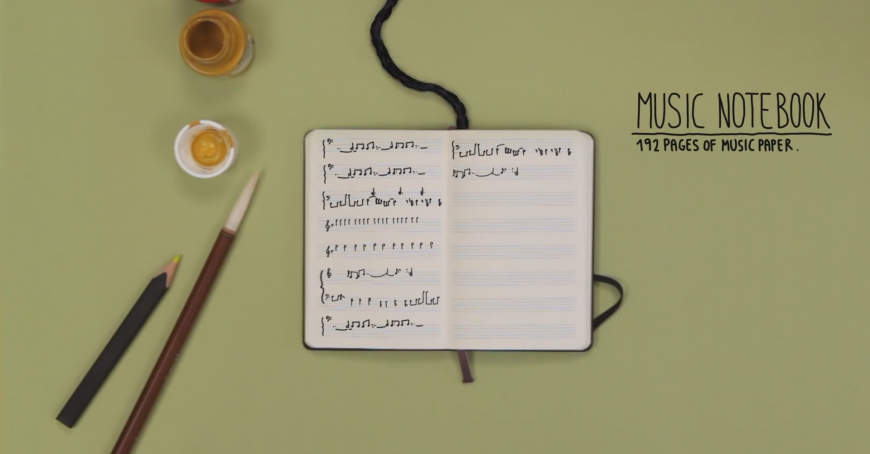 MUSIC NOTEBOOK
192 PAGES OF MUSIC PAPER.